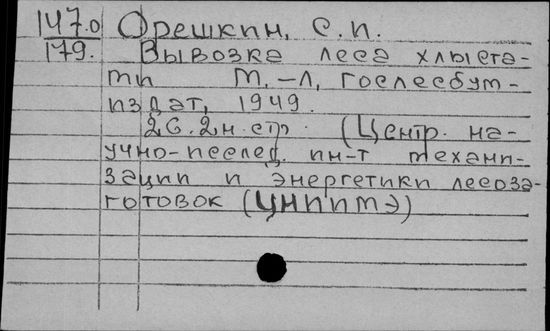 147.0 Орешкин, С.П.
179. Вывозка леса хлыста-
ми М.-Л, Гослесбум-
издат, 1949.
26.2н.стр. (Центр. на-
учно-исслед. ин-т механи-
зации и энергетики лесоза-
готовок (ЦНИИМЭ)